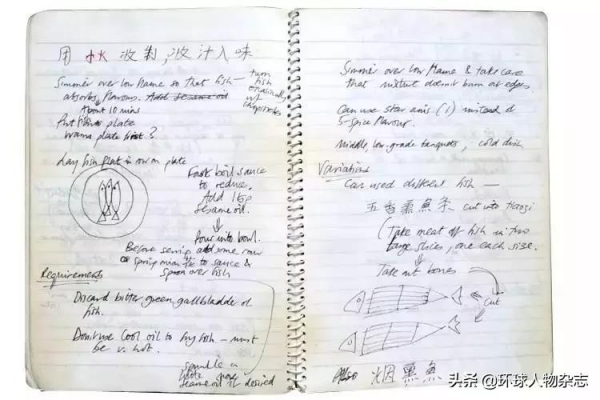 用 小火 收剂,收汁入味
Simmer over low flame so that fish
absorbs flavours. Add sesame oil
About 10 mins
turn fish occasionally
Put on plate
Warm plate first?
Lay fish flat in row on plate
Fast boil sauce
to reduce,
Add 1 tsp
sesame oil.
Pour into bowl.
Before serving add some raw
or spring onion to sauce &
spoon over fish
Requirements
Discard bitter green gallbladder of
fish.
Don't use cool oil to fry fish — must
be v. hot.
sprinkle a
little more
sesame oil if desired
Simmer over low flame & take care
that mixture doesn't burn at edges.
Can use star anis (1) instead of
5-spice flavour.
Middle, low-grade banquets, cold dish.
Variations
Can used different fish —
五香熏鱼条 cut into
(Take meat off fish in two
large slices, one each side.
Take out bones
Cut
Also 烟熏鱼
头条 @环球人物杂志